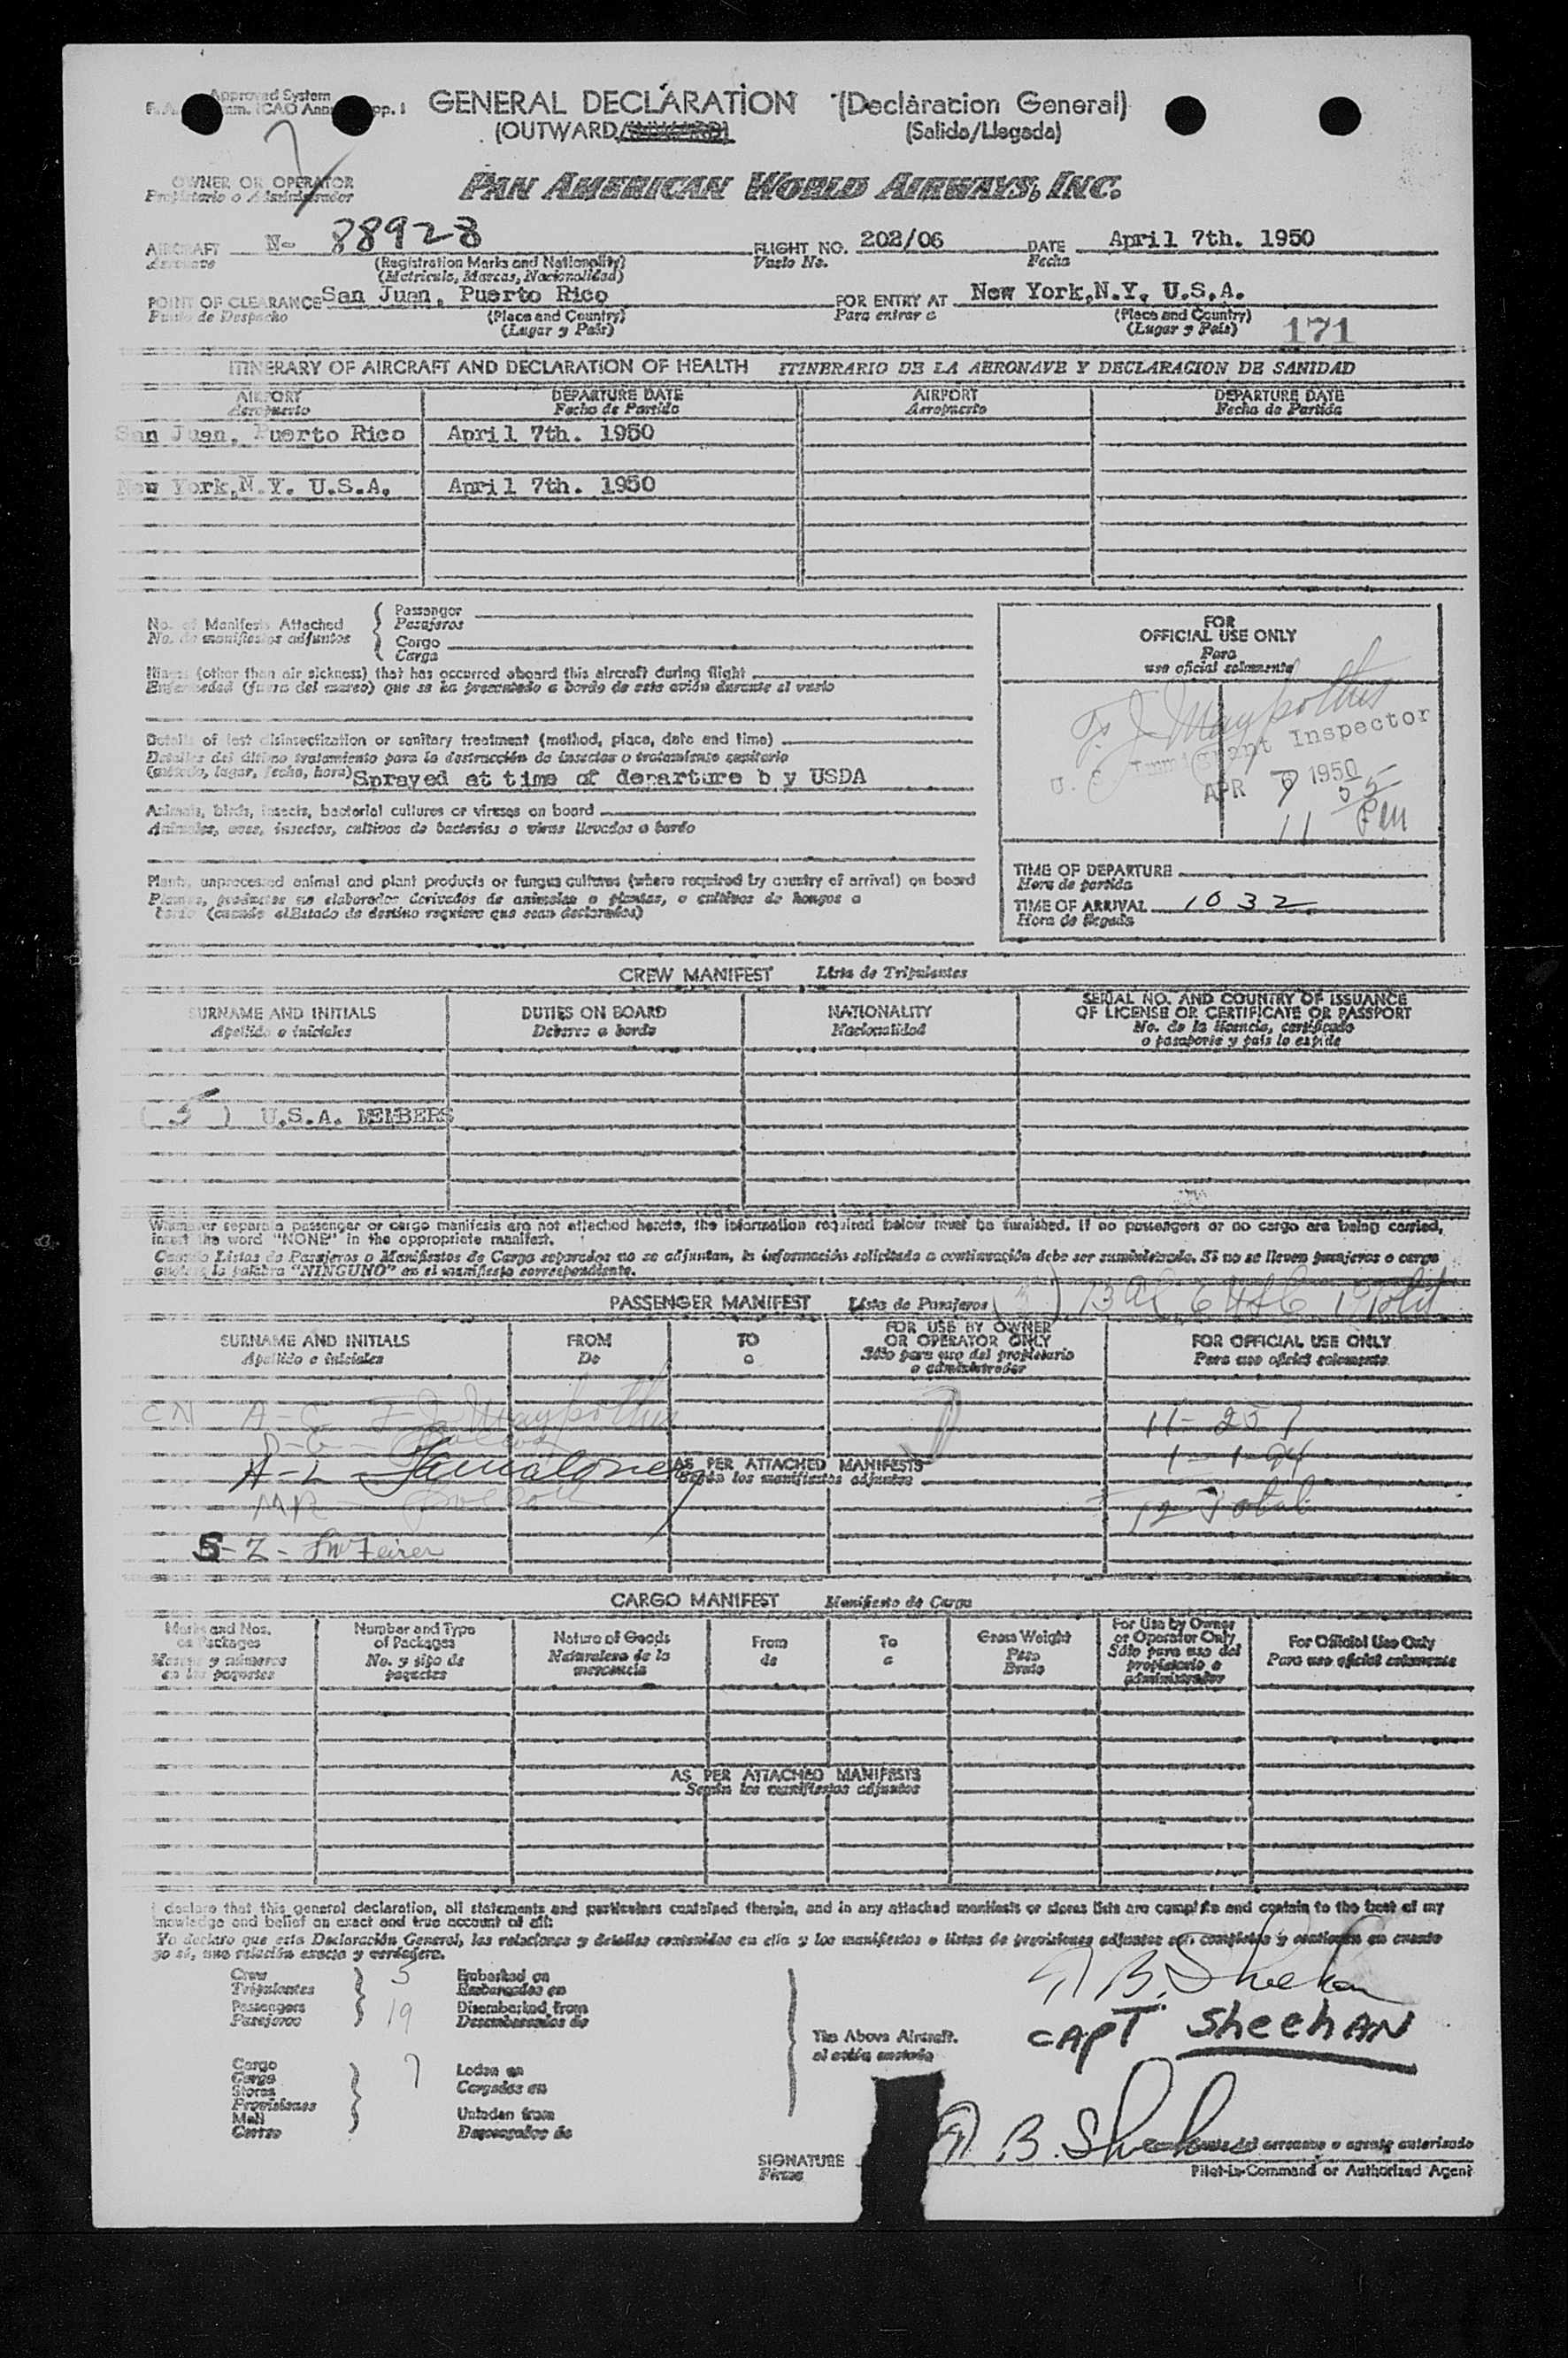 Approved System
GENERAL DECLARATION (Declaración General)
(OUTWARD/INWARD) (Salida/Llegada)
OWNER OR OPERATOR PAN AMERICAN WORLD AIRWAYS, INC.
Propietario o Administrador
AIRCRAFT N- 88928 FLIGHT NO. 202/06 DATE April 7th. 1950
Aeronave (Registration Marks and Nationality) Vuelo No. Fecha
(Matricula, Marcas, Nacionalidad)
POINT OF CLEARANCE San Juan, Puerto Rico FOR ENTRY AT New York,N.Y. U.S.A.
Punto de Despacho (Place and Country) Para entrar a (Place and Country)
(Lugar y País) (Lugar y País) 171
ITINERARY OF AIRCRAFT AND DECLARATION OF HEALTH ITINERARIO DE LA AERONAVE Y DECLARACION DE SANIDAD
AIRPORT DEPARTURE DATE AIRPORT DEPARTURE DATE
Aeropuerto Fecha de Partida Aeropuerto Fecha de Partida
San Juan, Puerto Rico April 7th. 1950
New York,N.Y. U.S.A. April 7th. 1950
No. of Manifests Attached Passenger
No. de manifiestos adjuntos Pasajeros
Cargo
Carga
Illness (other than air sickness) that has occurred aboard this aircraft during flight
Enfermedad (fuera del mareo) que se ha presentado a bordo de este avión durante el vuelo
Details of last disinsectization or sanitary treatment (method, place, date and time)
Detalles del último tratamiento para la destrucción de insectos o tratamiento sanitario
(método, lugar, fecha, hora) Sprayed at time of departure b y USDA
Animals, birds, insects, bacterial cultures or viruses on board
Animales, aves, insectos, cultivos de bacterias o virus llevados a bordo
Plants, unprocessed animal and plant products or fungus cultures (where required by country of arrival) on board
Plantas, productos no elaborados derivados de animales o plantas, o cultivos de hongos a
bordo (cuando el Estado de destino requiere que sean declarados)
FOR
OFFICIAL USE ONLY
Para
uso oficial solamente
U. S. Immigrant Inspector
APR 7 1950
11 55 PM
TIME OF DEPARTURE
Hora de partida
TIME OF ARRIVAL 1032
Hora de llegada
CREW MANIFEST Lista de Tripulantes
SURNAME AND INITIALS DUTIES ON BOARD NATIONALITY SERIAL NO. AND COUNTRY OF ISSUANCE
Apellido e iniciales Deberes a bordo Nacionalidad OF LICENSE OR CERTIFICATE OR PASSPORT
No. de la licencia, certificado
o pasaporte y país lo expide
( 5 ) U.S.A. MEMBERS
Whenever separate passenger or cargo manifests are not attached hereto, the information required below must be furnished. If no passengers or no cargo are being carried,
insert the word "NONE" in the appropriate manifest.
Cuando Listas de Pasajeros o Manifiestos de Carga separados no se adjuntan, la información solicitada a continuación debe ser suministrada. Si no se llevan pasajeros o carga
anótese la palabra "NINGUNO" en el manifiesto correspondiente.
PASSENGER MANIFEST Lista de Pasajeros
SURNAME AND INITIALS FROM TO FOR USE BY OWNER FOR OFFICIAL USE ONLY
Apellido e iniciales De a OR OPERATOR ONLY Para uso oficial solamente
Sólo para uso del propietario
o administrador
AS PER ATTACHED MANIFESTS
Según los manifiestos adjuntos
12 Total
CARGO MANIFEST Manifiesto de Carga
Marks and Nos. Number and Type Nature of Goods From To Gross Weight For Use by Owner For Official Use Only
on Packages of Packages Naturaleza de la de a Peso or Operator Only Para uso oficial solamente
Marcas y números No. y tipo de mercancía Bruto Sólo para uso del
en los paquetes paquetes propietario o
administrador
AS PER ATTACHED MANIFESTS
Según los manifiestos adjuntos
I declare that this general declaration, all statements and particulars contained therein, and in any attached manifests or stores lists are complete and contain to the best of my
knowledge and belief an exact and true account of all:
Yo declaro que esta Declaración General, las relaciones y detalles contenidos en ella y los manifiestos o listas de provisiones adjuntos son completos y contienen en cuanto
yo sé, una relación exacta y verdadera.
Crew 5 Embarked on
Tripulantes Embarcados en
Passengers 19 Disembarked from
Pasajeros Desembarcados de
The Above Aircraft.
el avión anotado
B. Sheehan
CAPT Sheehan
Cargo 7 Laden on
Carga Cargados en
Stores
Provisiones
Mail Unladen from
Correo Descargados de
SIGNATURE B. Sheehan Comandante del aeronave o agente autorizado
Firma Pilot-in-Command or Authorized Agent